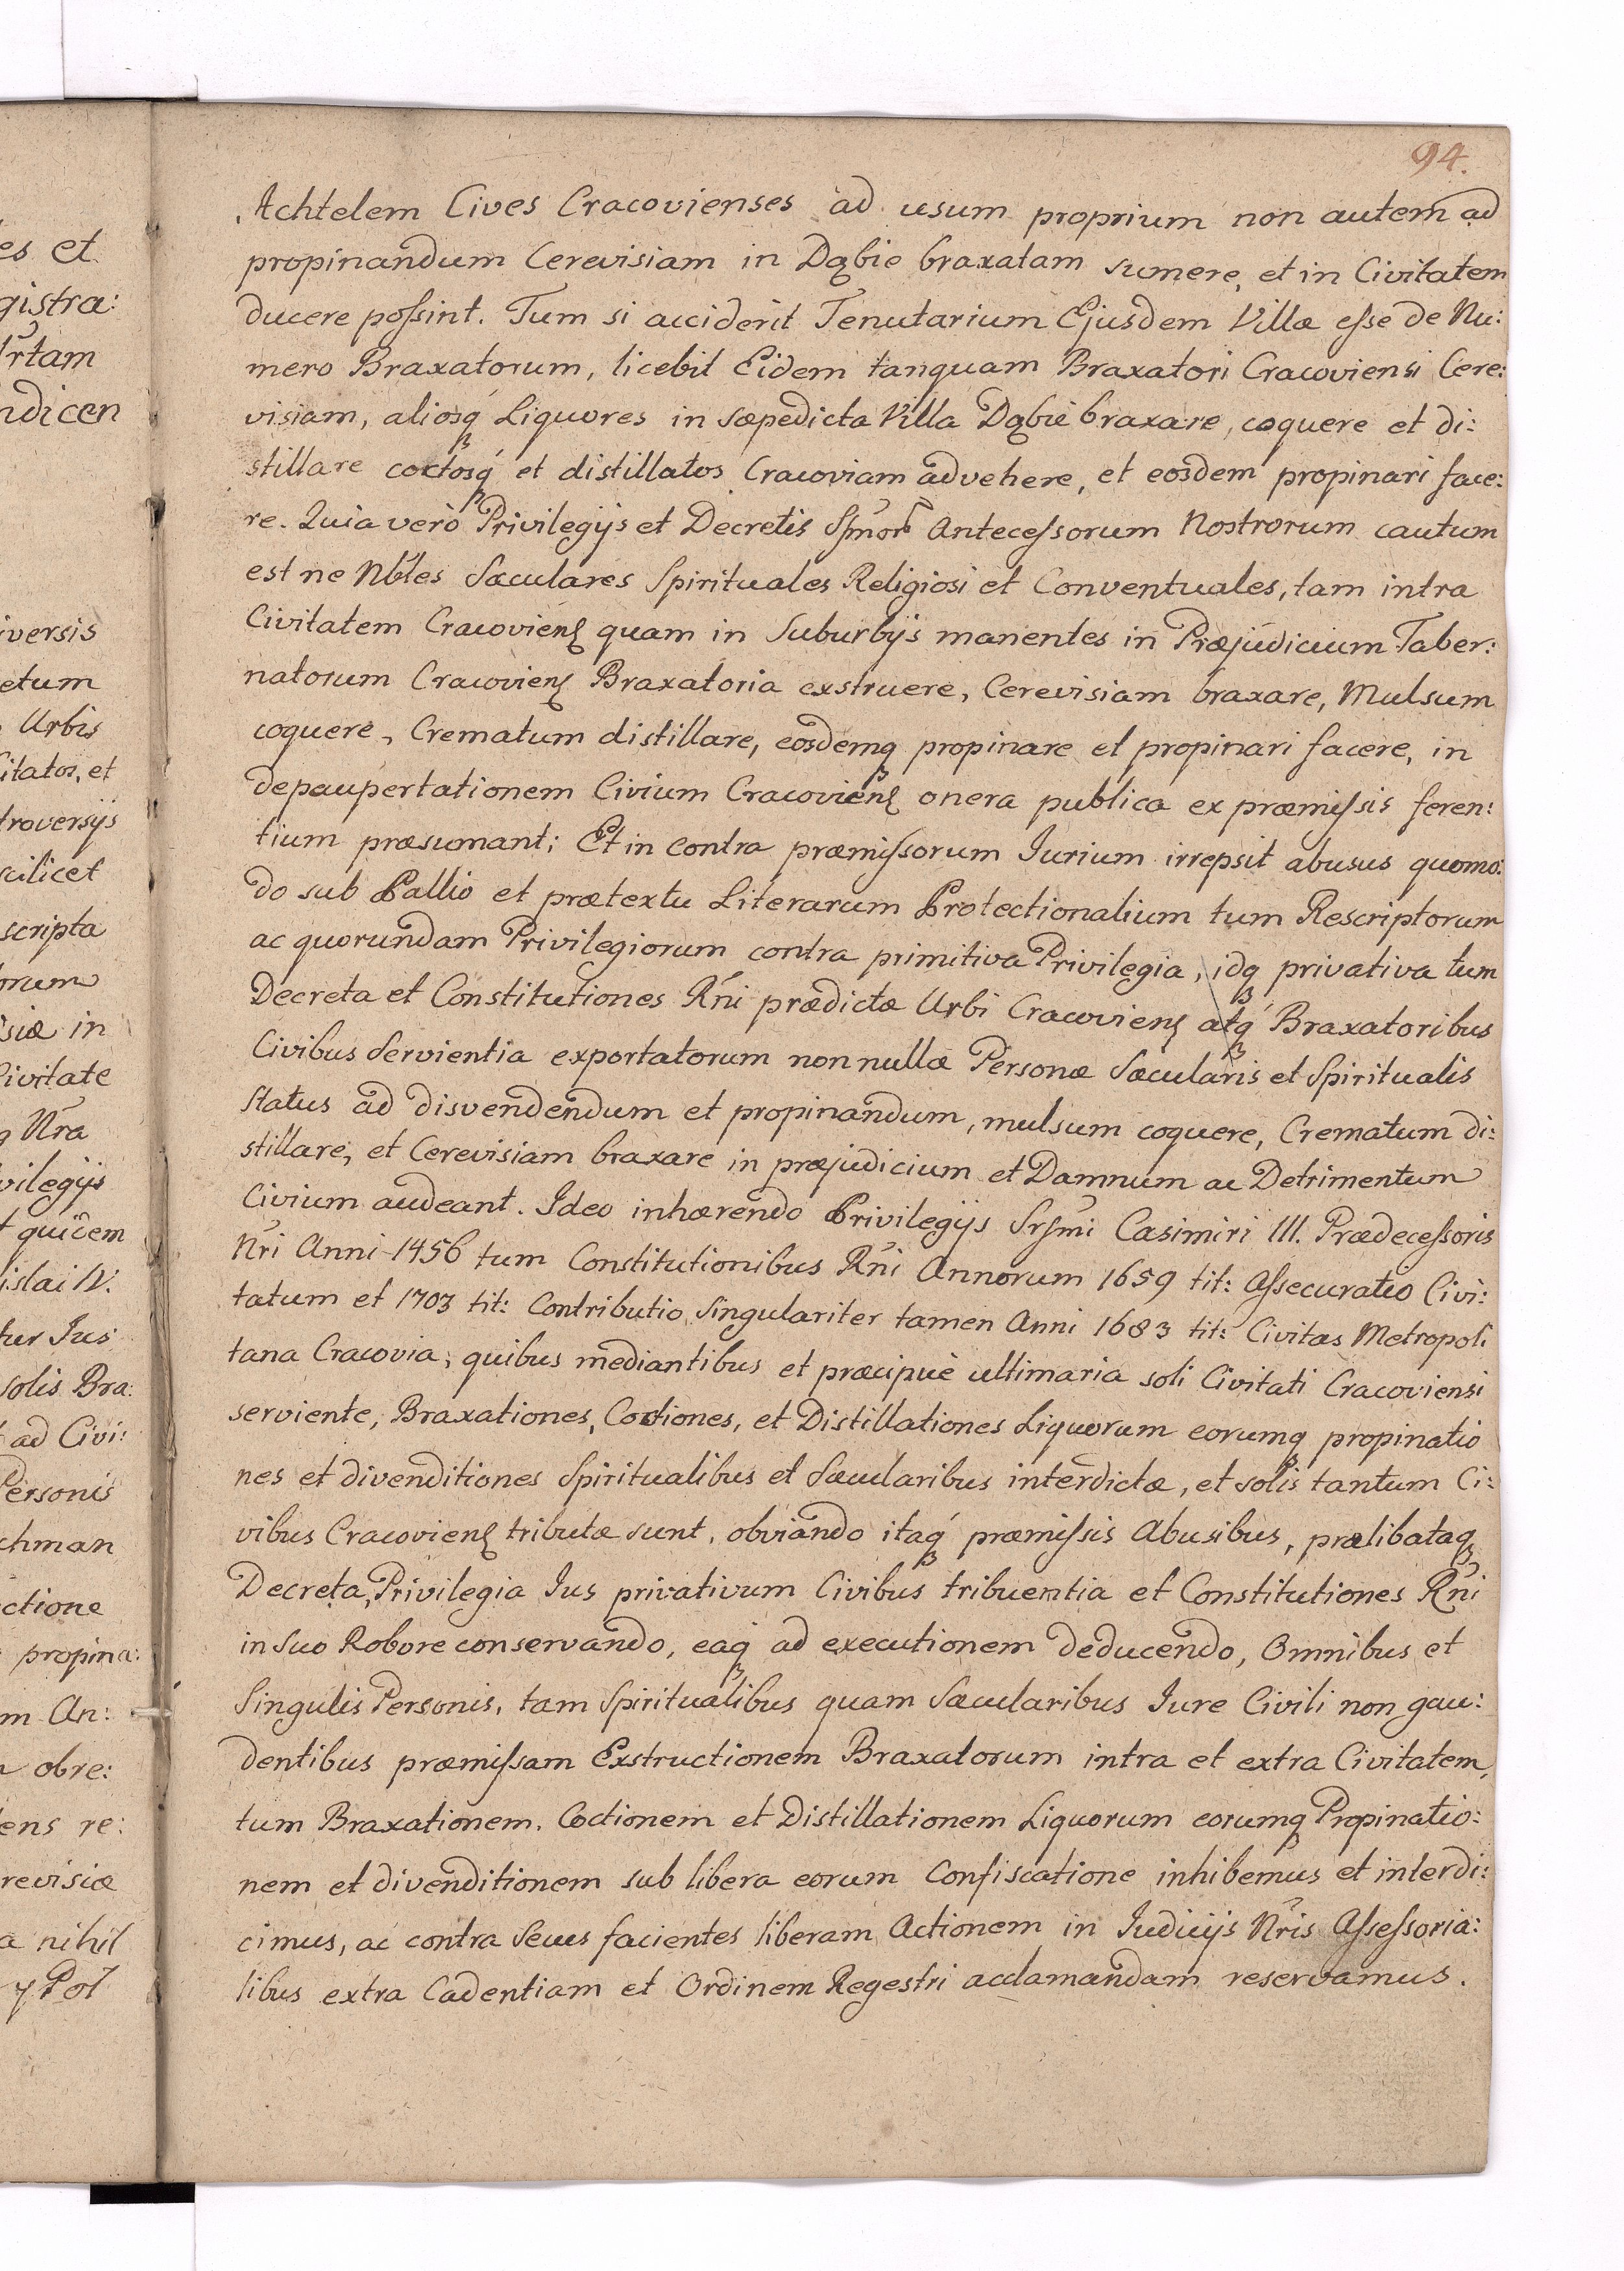 94.
Achtelem Cives Cracovienses ad usum proprium non autem ad
propinandum Cerevisiam in Dąbie braxatam sumere, et in Civitatem
ducere poſsint. Tum si acciderit Tenutarium Ejusdem Villæ eſse de Nu:
mero Braxatorum, licebit Eidem tanquam Braxatori Cracoviensi Cere:
visiam, aliosq́ꝫ Liquores in sæpedicta Villa Dąbie braxare, coquere et di:
stillare coctosq́ꝫ et distillatos Cracoviam advehere, et eosdem propinari face:
re. Quia verò Privilegijs et Decretis Sſm̃or̃ Anteceſsorum Nostrorum cautum
est ne Nb̃les Sæculares Spirituales Religiosi et Conventuales, tam intra
Civitatem Cracovienſ quam in Suburbijs manentes in Præjudicium Taber:
natorum Cracovienſ Braxatoria exstruere, Cerevisiam braxare, Mulsum
coquere, Crematum distillare, eosdemqꝫ propinare et propinari facere, in
depaupertationem Civium Cracovienſ onera publica ex præmiſsis feren:
tium præsumant; Et in contra præmiſsorum Iurium irrepsit abusus quomo:
do sub Pallio et prætextu Literarum Protectionalium tum Rescriptorum
ac quorundam Privilegiorum contra primitiva Privilegia, idqꝫ privativa tum
Decreta et Constitutiones Rñi prædictæ Urbi Cracovienſ atq́ꝫ Braxatoribus
Civibus Servientia exportatorum nonnullæ Personæ Sæcularis et Spiritualis
Status ad disvendendum et propinandum, mulsum coquere, Crematum di:
stillare, et Cerevisiam braxare in præjudicium et Damnum ac Detrimentum
Civium audeant. Ideo inhærendo Privilegijs Srſm̃i Casimiri III. Prædeceſsoris
Nr̃i Anni 1456 tum Constitutionibus Rñi Annorum 1659 tit: Aſsecuratio Civi:
tatum et 1703 tit: Contributio, Singulariter tamen Anni 1683 tit: Civitas Metropoli
tana Cracovia, quibus mediantibus et præcipuè ultimaria soli Civitati Cracoviensi
serviente, Braxationes, Coctiones, et Distillationes Liquorum eorumqꝫ propinatio
nes et divenditiones Spiritualibus et Sæcularibus interdictæ, et solis tantum Ci:
vibus Cracovienſ tributæ sunt, obviando itaq́ꝫ præmiſsis Abusibus, prælibataqꝫ
Decreta, Privilegia Ius privativum Civibus tribuentia et Constitutiones Rñi
in Suo Robore conservando, eaqꝫ ad executionem deducendo, Omnibus et
Singulis Personis, tam Spiritualibus quam Sæcularibus Iure Civili non gau:
dentibus præmiſsam Exstructionem Braxatorum intra et extra Civitatem,
tum Braxationem, Coctionem et Distillationem Liquorum eorumqꝫ Propinatio:
nem et divenditionem sub libera eorum Confiscatione inhibemus et interdi:
cimus, ac contra Secus facientes liberam Actionem in Iudicijs Nr̃is Aſseſsoria:
libus extra Cadentiam et Ordinem Regestri acclamandam reservamus.